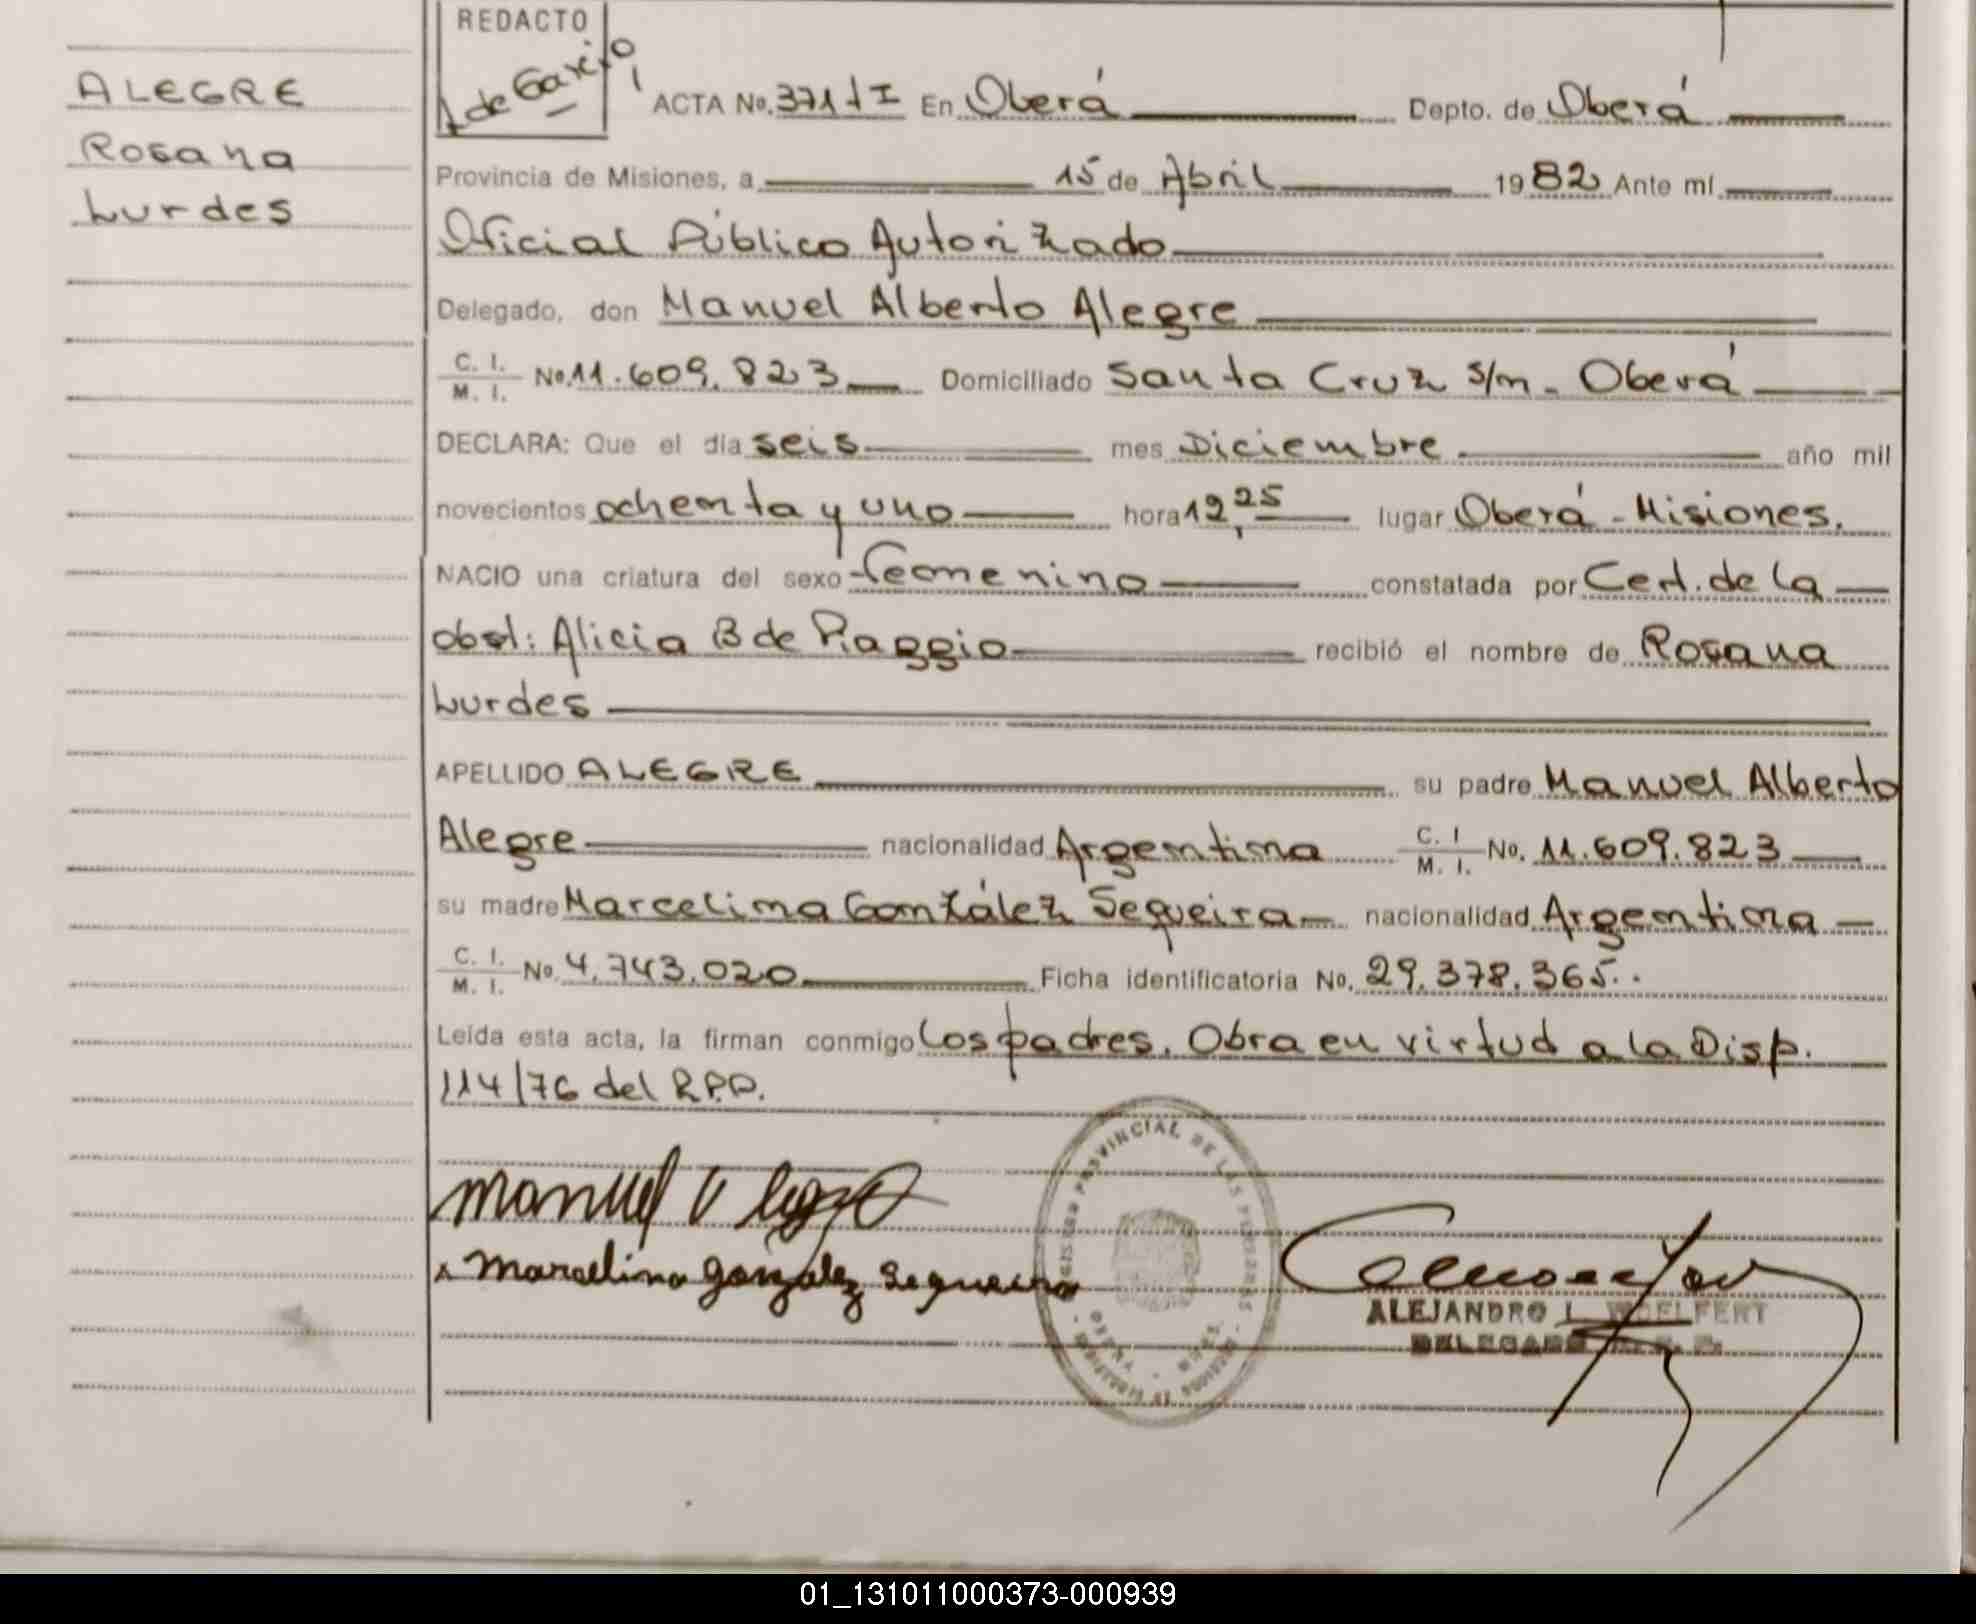 REDACTO
ALEGRE
Rosana
Lurdes
ACTA No. 371 t I En Oberá Depto. de Oberá
Provincia de Misiones, a 15 de Abril 1982 Ante mí
Oficial Público Autorizado
Delegado, don Manuel Alberto Alegre
C. I. M. I. No. 11.609.823 Domiciliado Santa Cruz s/m - Oberá
DECLARA: Que el día seis mes Diciembre año mil
novecientos ochenta y uno hora 12,25 lugar Oberá - Misiones.
NACIO una criatura del sexo femenino constatada por Cert. de la
obst: Alicia B de Piaggio recibió el nombre de Rosana
Lurdes
APELLIDO ALEGRE su padre Manuel Alberto
Alegre nacionalidad Argentina C. I M. I. No. 11.609.823
su madre Marcelina González Sequeira nacionalidad Argentina
C. I. M. I. No. 4.743.020 Ficha identificatoria No. 29.378.365..
Leída esta acta, la firman conmigo los padres. Obra en virtud a la Disp.
114/76 del R.P.P.
Marcelina gonzalez Sequeira
ALEJANDRO L. WOELFERT
DELEGADO
01_131011000373-000939